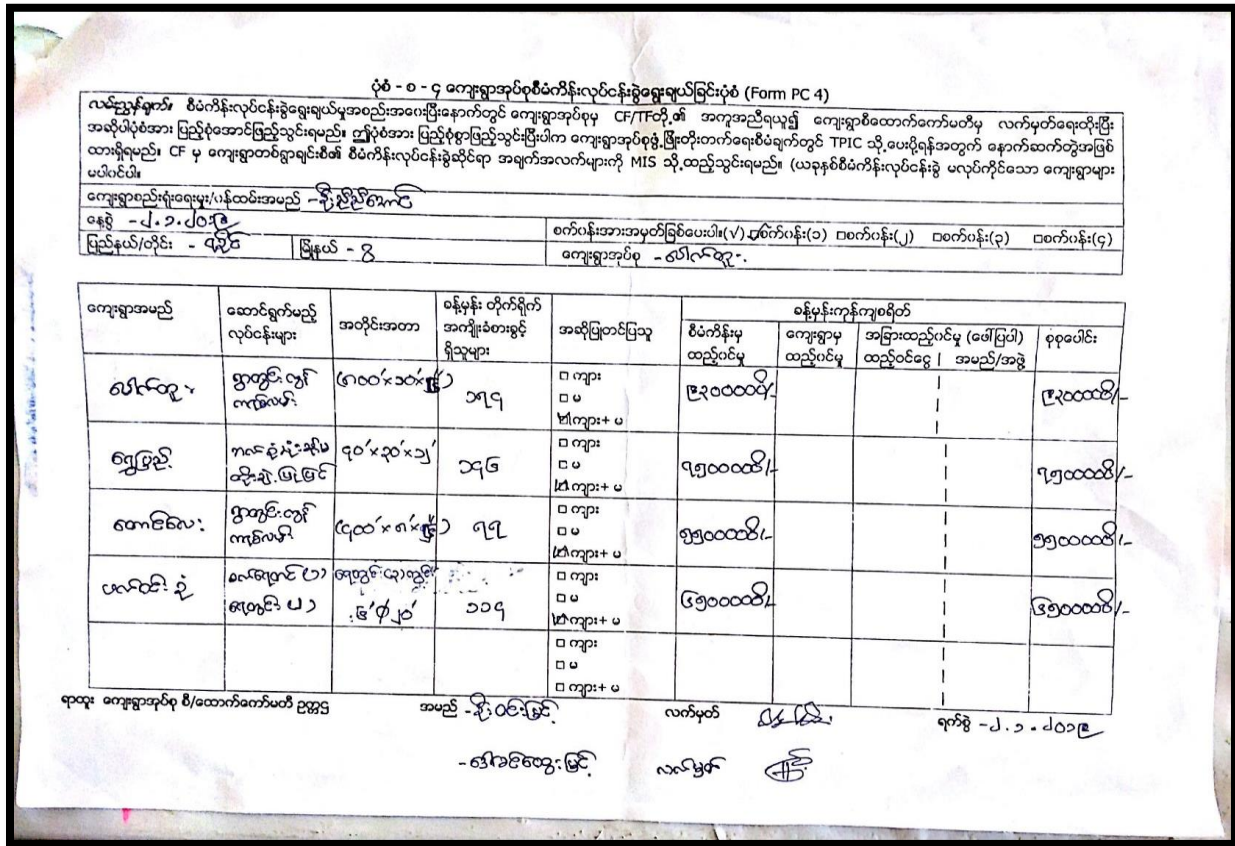 ပုံစံ - စ - ၄ ကျေးရွာအုပ်စုစီမံကိန်းလုပ်ငန်းခွဲရွေးချယ်ခြင်းပုံစံ (Form PC 4)
လမ်းညွှန်ချက်။ စီမံကိန်းလုပ်ငန်းခွဲရွေးချယ်မှုအစည်းအဝေးပြီးနောက်တွင် ကျေးရွာအုပ်စုမှ CF/TFတို့၏ အကူအညီရယူ၍ ကျေးရွာစီထောက်ကော်မတီမှ လက်မှတ်ရေးထိုးပြီး
အဆိုပါပုံစံအား ပြည့်စုံအောင်ဖြည့်သွင်းရမည်။ ဤပုံစံအား ပြည့်စုံစွာဖြည့်သွင်းပြီးပါက ကျေးရွာအုပ်စုဖွံ့ဖြိုးတိုးတက်ရေးစီမံချက်တွင် TPIC သို့ပေးပို့ရန်အတွက် နောက်ဆက်တွဲအဖြစ်
ထားရှိရမည်။ CF မှ ကျေးရွာတစ်ရွာချင်းစီ၏ စီမံကိန်းလုပ်ငန်းခွဲဆိုင်ရာ အချက်အလက်များကို MIS သို့ထည့်သွင်းရမည်။ (ယခုနှစ်စီမံကိန်းလုပ်ငန်းခွဲ မလုပ်ကိုင်သော ကျေးရွာများ
မပါဝင်ပါ။
ကျေးရွာစည်းရုံးရေးမှူး/ဝန်ထမ်းအမည် - ဦးညီညီအောင်
နေ့စွဲ - ၂.၁.၂၀၁၉
စက်ဝန်းအားအမှတ်ခြစ်ပေးပါ။(√) ☑စက်ဝန်း(၁) □စက်ဝန်း(၂) □စက်ဝန်း(၃) □စက်ဝန်း(၄)
ပြည်နယ်/တိုင်း - ရခိုင် မြို့နယ် - ဂွ ကျေးရွာအုပ်စု - လါက်ထူး
ခန့်မှန်းကုန်ကျစရိတ်
ကျေးရွာအမည် ဆောင်ရွက်မည့် လုပ်ငန်းများ အတိုင်းအတာ ခန့်မှန်း တိုက်ရိုက် အကျိုးခံစားခွင့် ရှိသူများ အဆိုပြုတင်ပြသူ စီမံကိန်းမှ ထည့်ဝင်မှု ကျေးရွာမှ ထည့်ဝင်မှု အခြားထည့်ဝင်မှု (ဖေါ်ပြပါ) ထည့်ဝင်ငွေ | အမည်/အဖွဲ့ စုစုပေါင်း
□ ကျား
□ မ
လါက်ထူး ရွာတွင်းကွန်ကရစ်လမ်း ၁၇၄ ☑ ကျား+ မ ၉၃၀၀၀၀၀ိ/- ၉၃၀၀၀၀၀ိ/-
□ ကျား
□ မ
ရွှေပြည် ၄၀'x၃၀'x၁၂' ၁၄၆ ☑ ကျား+ မ ၇၅၀၀၀၀၀ိ/- ၇၅၀၀၀၀၀ိ/-
□ ကျား
□ မ
တောင်လေး ရွာတွင်းကွန်ကရစ်လမ်း ၇၇ ☑ ကျား+ မ ၅၅၀၀၀၀၀ိ/- ၅၅၀၀၀၀၀ိ/-
□ ကျား
□ မ
၆'Φ၂၀' ၁၁၄ ☑ ကျား+ မ ၆၅၀၀၀၀၀ိ/- ၆၅၀၀၀၀၀ိ/-
□ ကျား
□ မ
□ ကျား+ မ
ရာထူး ကျေးရွာအုပ်စု စီ/ထောက်ကော်မတီ ဥက္ကဌ အမည် - ဦးဝင်းမြင့် လက်မှတ် ရက်စွဲ - ၂.၁.၂၀၁၉
- ဒေါ်ခင်ထွေးမြင့် လက်မှတ်